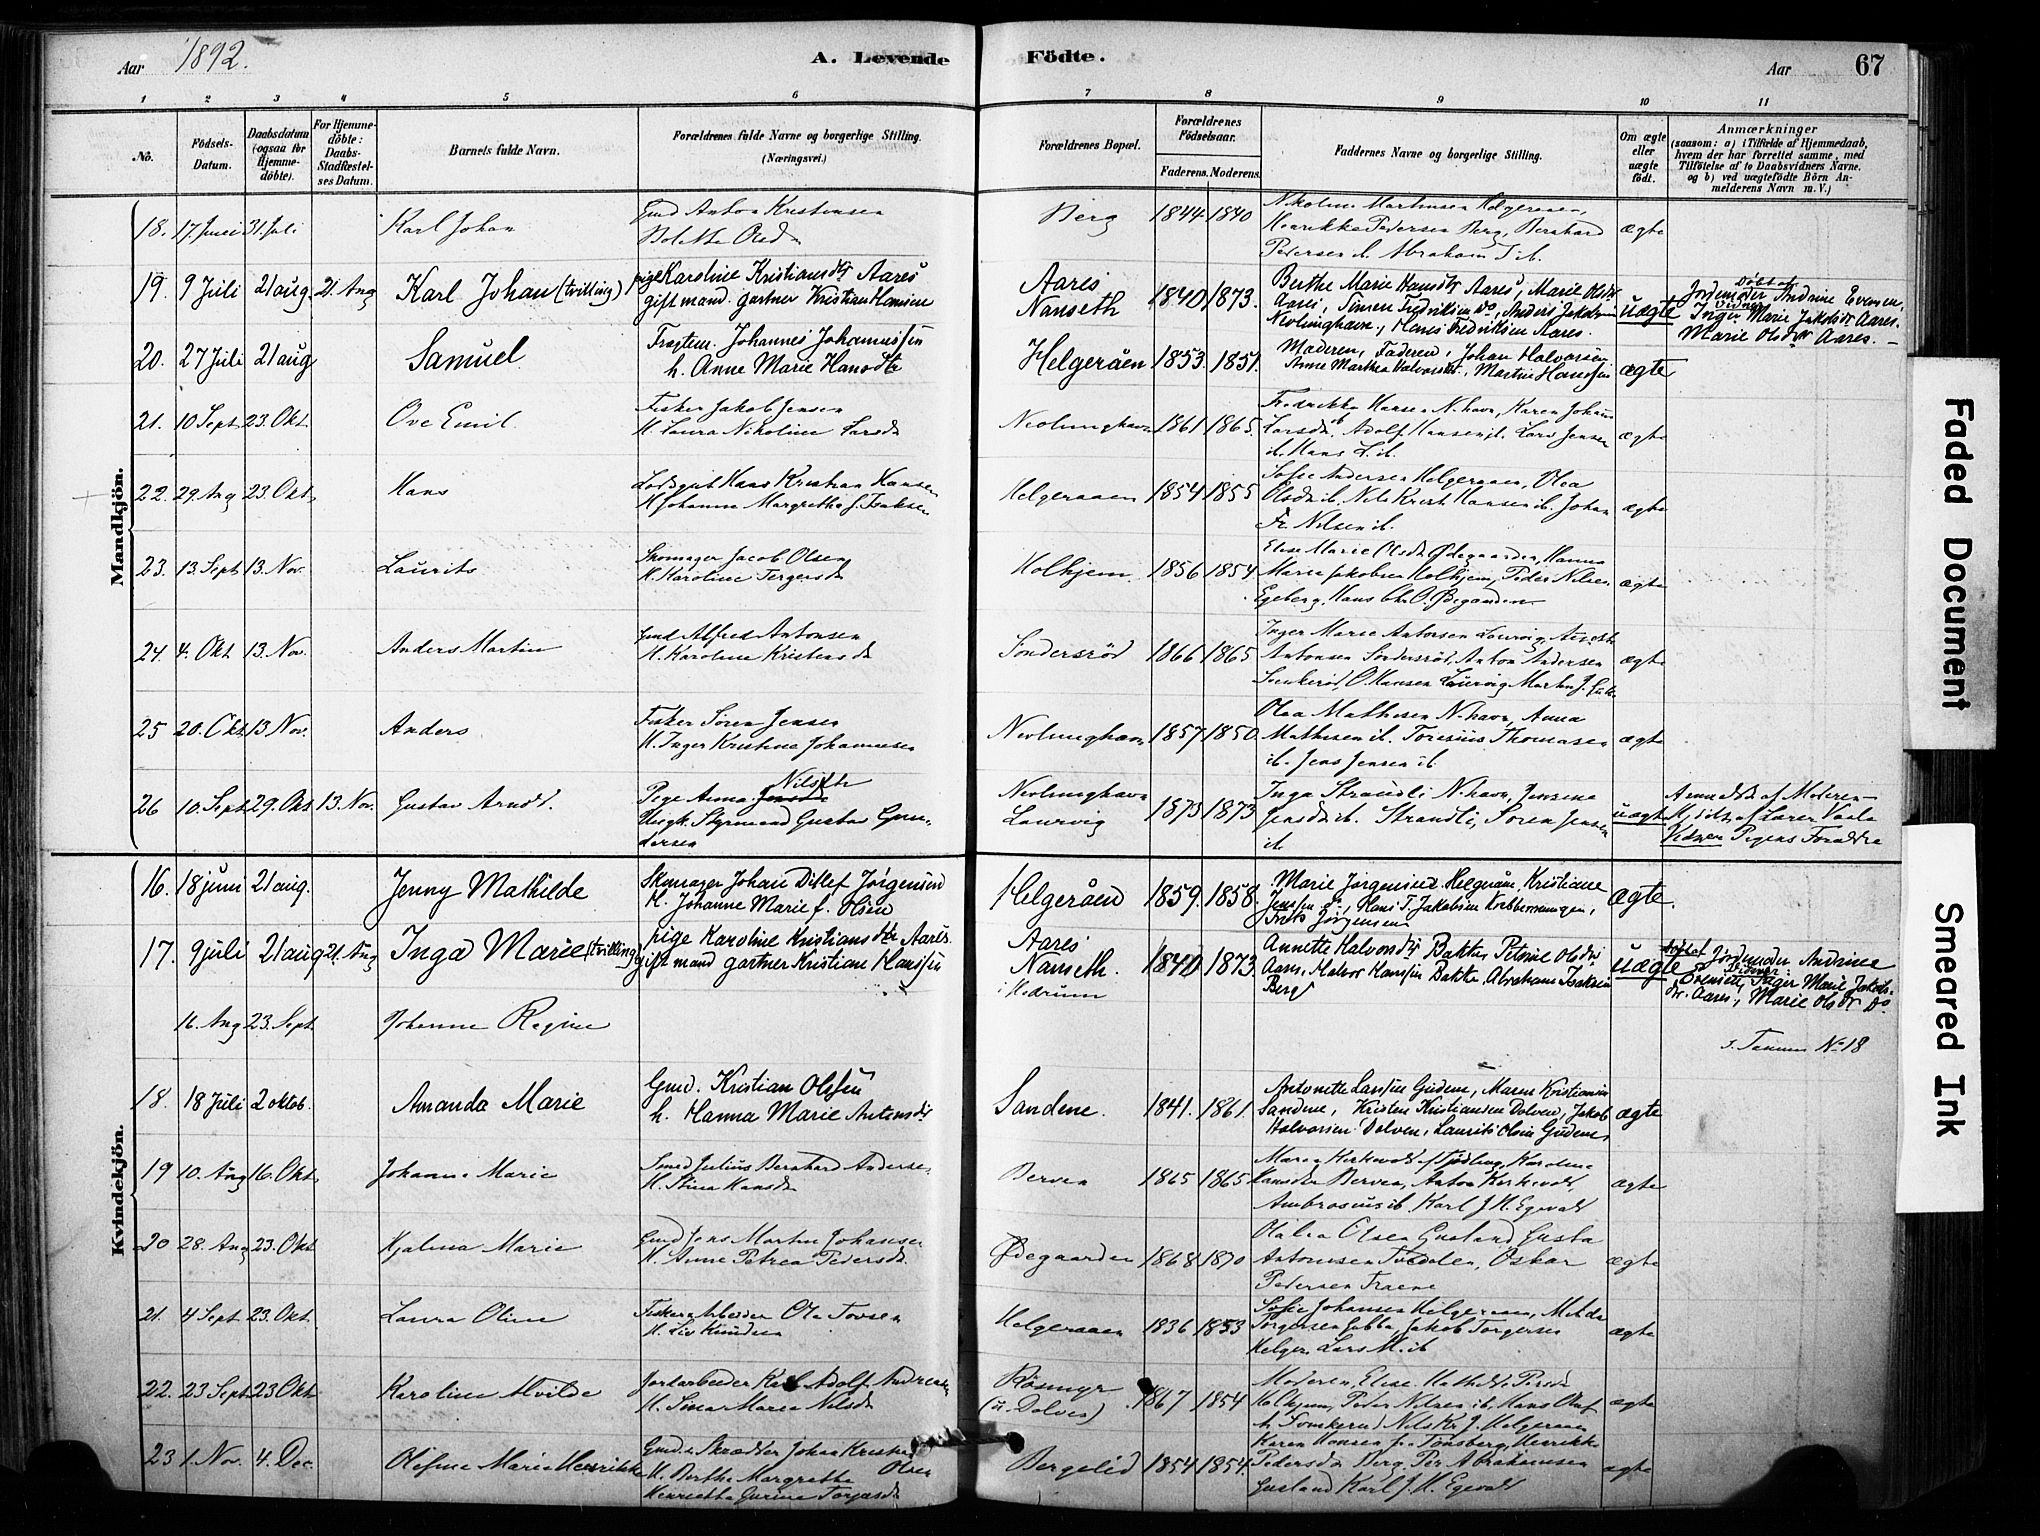 Aar 1892. A. Levende Födte. Aar 67
1 2 3 4 5 6 7 8 9 10 11
No.
Födsels-
Datum.
Daabsdatum
(ogsaa for
Hjemme-
döbte).
For Hjemme-
döbte:
Daabs-
Stadfæstel-
ses Datum.
Barnets fulde Navn.
Forældrenes fulde Navne og borgerlige Stilling.
(Næringsvei.)
Forældrenes Bopæl.
Forældrenes
Födselsaar.
Faderens. Moderens.
Faddernes Navne og borgerlige Stilling.
Om ægte
eller
uægte
födt.
Anmærkninger
(saasom: a) i Tilfælde af Hjemmedaab,
hvem der har forrettet samme, med
Tilföielse af to Daabsvidners Navne,
og b) ved uægtefödte Börn An-
melderens Navn m. V.)
Mandkjön.
18. 17. Juni 31. Juli Karl Johan
Gmd Anton Kristensen
Bolette Olsd
Berg 1844 1840
Henrikke Pedersen Berg, Bernhard
Pedersen ib. Abraham ib.
ægte
19. 9 Juli 21 aug. 21. Aug Karl Johan (tvilling)
pige Karoline Kristiansdtr Aares
gift mand. gartner Kristian Hansen
Aares
Nanseth 1840 1873.
Berthe Marie Hansdtr Aares, Marie Olsdtr
Aares, Simen Fredriksen do, Anders Jakobsen
Nevlinghavn, Hans Fredriksen Aares.
uægte
Döbt af
Jordemoder Andrine Evensen,
Vidner
Inger Marie Jakobsdr Aares.
Marie Olsdr Aares. –
20. 27 Juli 21 aug Samuel.
Johannes Johannessen
h. Anne Marie Hansdtr
Helgeråen 1853. 1851.
Moderen, Faderen, Johan Halvorsen
Anne Marthea Halvorsen, Martin Hanssen
ægte
21. 10 Sept 23. Okt. Ove Emil.
Fisker Jakob Jensen
H. Laura Nikoline Larsd
Nevlunghavn 1861 1865.
Fredrikke Hansen N.havn, Karen Johans
Larsdr ib, Adolf Hansen ib. Lars Jensen
ib. Hans L. ib.
ægte
22. 29. Aug 23. Okt. Hans
Lodsgut Hans Kristian Hansen
H Johanne Margrethe f. Isaksen
Helgeraaen 1854 1855
Sofie Andersen Helgeraaen, Olea
Olsdr ib. Nils Krist. Hansen ib. Johan
Fr. Nilsen ib.
ægte
23. 13. Sept 13. Nov. Laurits
Skomager Jacob Olsen
H. Karoline Tergersd
Holhjem 1856 1854
Elise Marie Olsdr Ødegaarden, Hanna
Marie Jakobsen Holhjem, Peder Nilsen
Egeberg, Hans Chr. O. Ødegaarden
ægte
24. 4. Okt. 13. Nov. Anders Martin
Gmd Alfred Antonsen
H. Karoline Kristensd
Söndersröd 1866 1865
Inger Marie Antonsen Laurvig,
Antonsen Söndersröd, Anton Andersen
O. Hansen Laurvig
ægte
25 20. Okt 13. Nov. Anders
Fisker Sören Jensen
H. Inger Kristine Johannesen
Nevlunghavn 1857. 1850.
Olaa Mathisen N.havn, Anna
Mathisen ib. Toresius Thomasen
ib. Jens Jensen ib.
ægte
26 10. Sept 29. Okt 13. Nov. Gustav Arndt.
Nilsdtr
Pige Anna Jensd
Ungk. Styrmand Gustav Gun-
dersen
Nevlunghavn
Laurvig 1873 1873
Inga Strandli N.havn, Jensine
Jensdr ib. Strandli, Sören Jensen
ib
uægte
Anmeldt af Moderen
Hj. döbt af Lærer Vaale
Vidner Pigens Forældre
Kvindekjön.
16. 18 juni 21 aug. Jenny Mathilde
Skomager Johan Ditlef Jörgensen
H. Johanne Marie f. Olsen
Helgeråen 1859. 1858.
Marie Jörgensen Helgeråen, Kristiane
Jenssen do, Hans T. Jakobsen
Jörgensen
ægte.
17. 9 juli 21 aug 21. Aug Inga Marie (tvilling)
pige Karoline Kristiansdtr Aares.
gift mand gartner Kristian Hanssen
Aares
Nanseth.
i Hedrum 1840 1873.
Annette Halvorsdtr Bakke, Petrine Olsdtr
Aares, Halvor Hanssen Bakke, Abraham Isaksen
Berg
uægte
döbt af Jordmoder Andrine
Vidner:
Evensen, Inger Marie Jakobs-
dr. Aares, Marie Olsdr Do.
16. Aug 23. Sept Johanne Regine
s. Tanum No 18
18. 18 Juli 2 oktob. Amanda Marie
Gmd. Kristian Olssen
h. Hanna Marie Antonsdtr
Sandene. 1841. 1861.
Antonette Larssen Gudem, Maren Kristiansen
Sandene, Kristen Kristiansen Dolven, Jakob
Halvorsen Dolven, Laurits Olsen Gudem,
ægte
19 10. Aug 16. Okt. Johanne Marie
Smed Julius Bernhard Andersen
H. Stina Hansdr
Berven 1865 1865
Maren Kirkevold Karoline
Hansdtr Berven, Anton Kirkevold,
Ambrosius ib. Karl J. H. Egevold
ægte
20 28. Aug 23. Okt Hjalma Marie
Gmd Jens Martin Johansen
H. Anne Petrea Pedersdr.
Ødegaarden 1868 1870
Olalia Olsen Gusland, Gusta
Antonsen Oskar
Pedersen
ægte
21. 4 Sept. 23. Okt. Laura Oline
Fisker Arbeider Ole Tovsen
H. Liv Knudsen
Helgeraaen 1836 1853
Sofie Johansen Helgeraaen,
Torgersen Jakob Torgersen
Helger. Lars M. ib
ægte
22. 23 Sept 23 Okt. Karoline Alvilde
Jordarbeider Karl Adolf Andreasen
H. Sina Maren Nilsd
Rösmyr
(u. Dolven) 1867 1854
Moderen, Elise Mathilde
Holhjem, Peder Nilsen ib. Hans Olaf
Nils Kr. J. Helgeraaen
ægte
23 1. Nov. 4. Dec. Olefine Marie Henrikke
Gmd & Skrædder Johan Kristian
H. Berthe Margrethe Olsen
Henriette Gurine Torgersd
Bergelid 1854 1854.
Karen Hansen fra Tönsberg, Henrikke
Pedersdr Berg, Per Abrahamsen
Gusland Karl J. H. Egevold
ægte
Faded Document
Smeared Ink